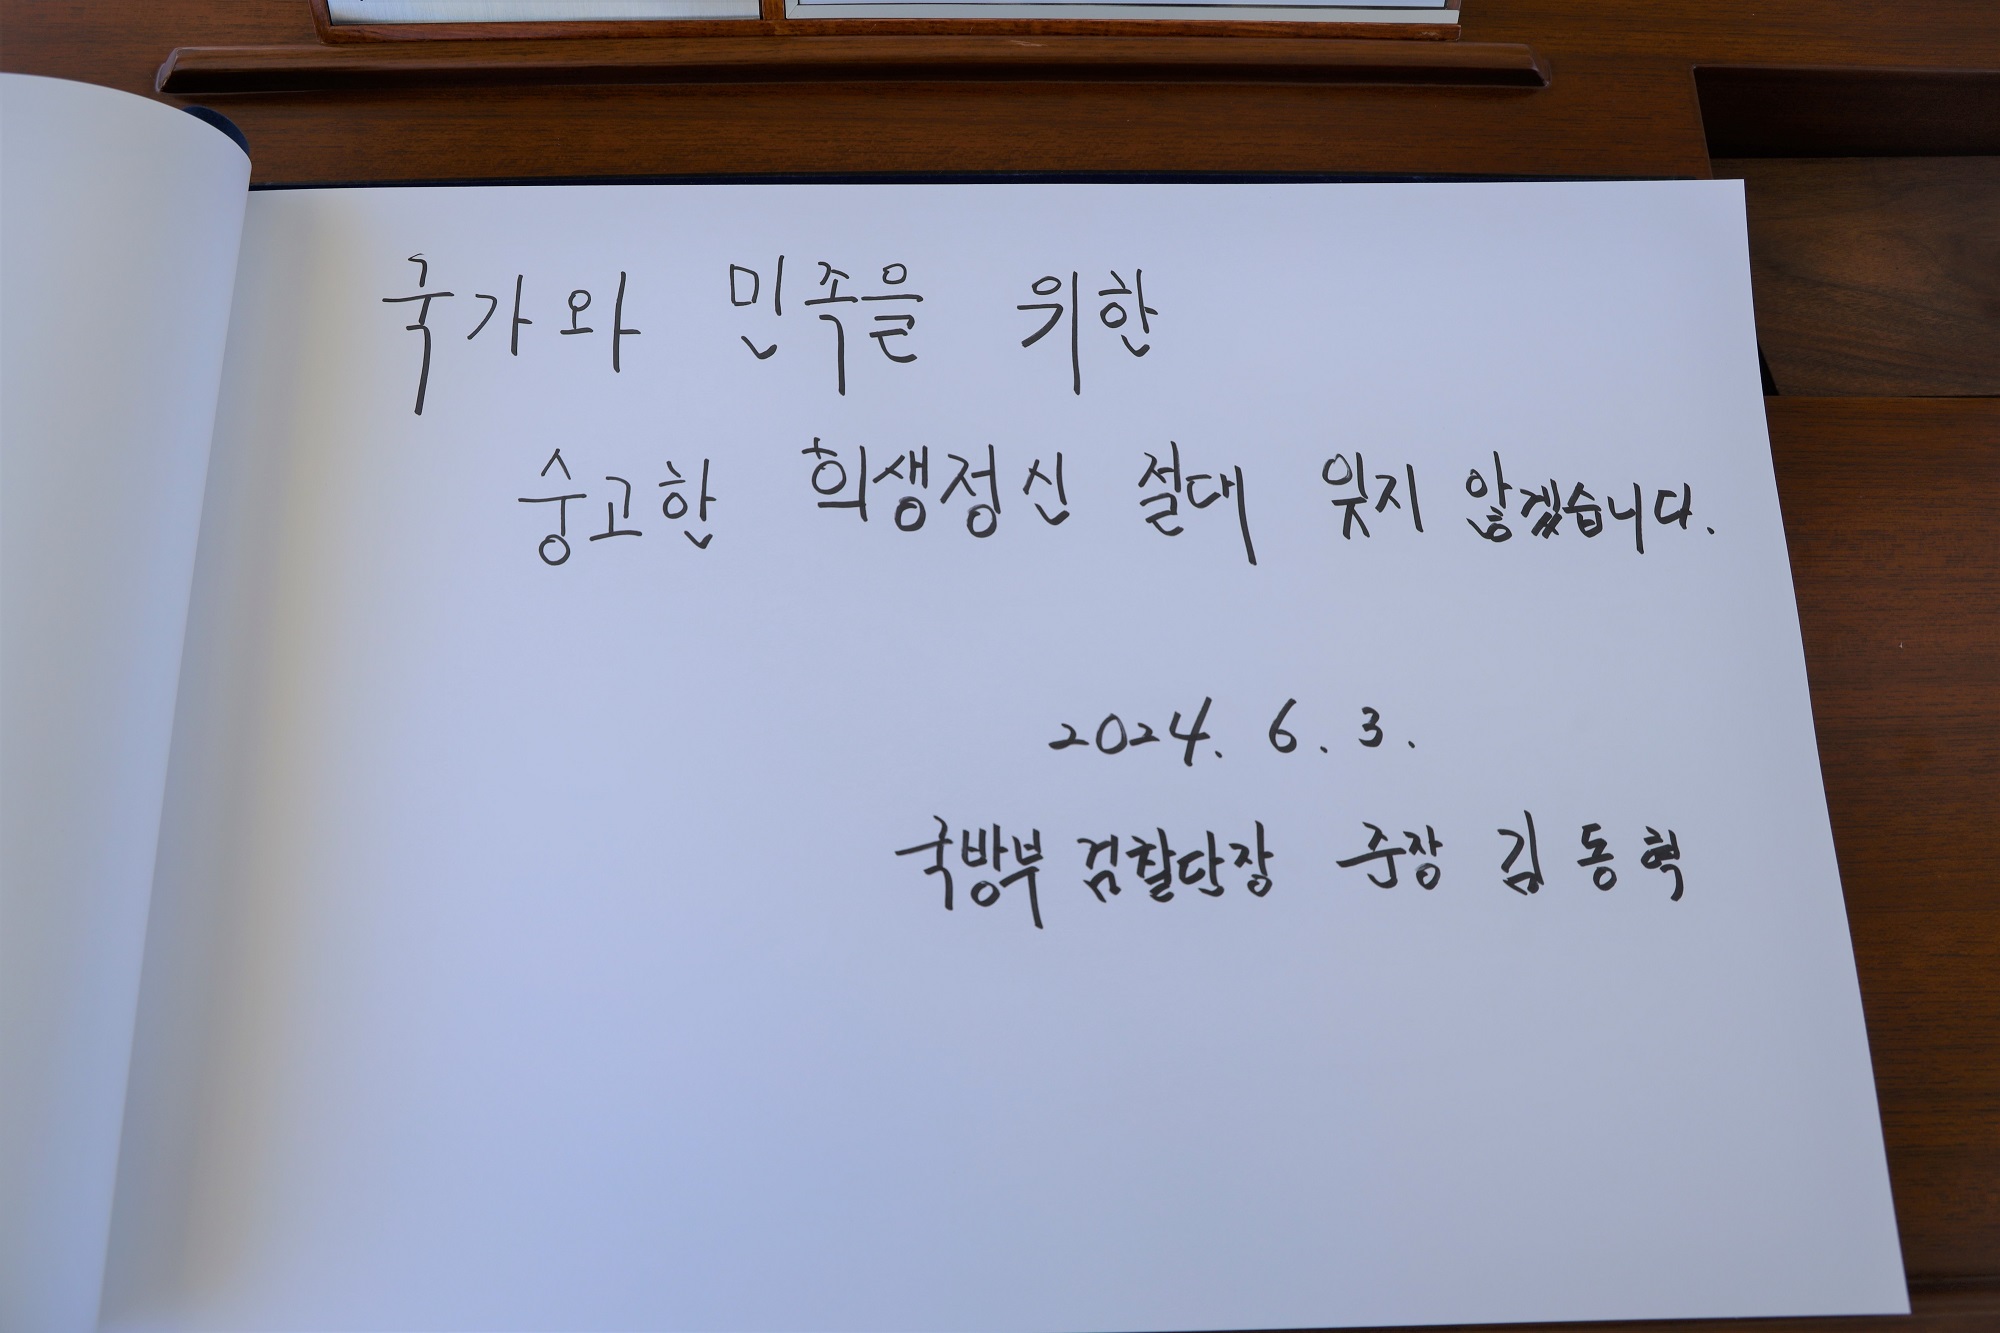 국가와 민족을 위한
숭고한 희생정신 절대 잊지 않겠습니다.
2024. 6. 3.
국방부 검찰단장 준장 김동혁